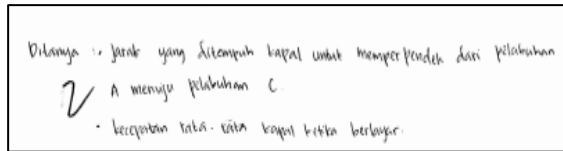 Ditanya : . jarak yang ditempuh kapal untuk memperpendek dari pelabuhan
A menuju pelabuhan C.
• kecepatan rata-rata kapal ketika berlayar.